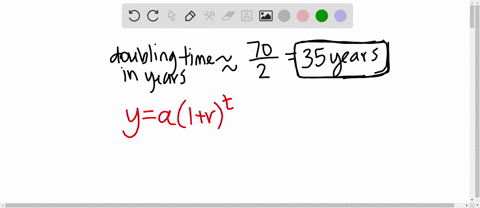 doubling time ≈ 70/2 = 35 years
in years
y=a(1+r)^t